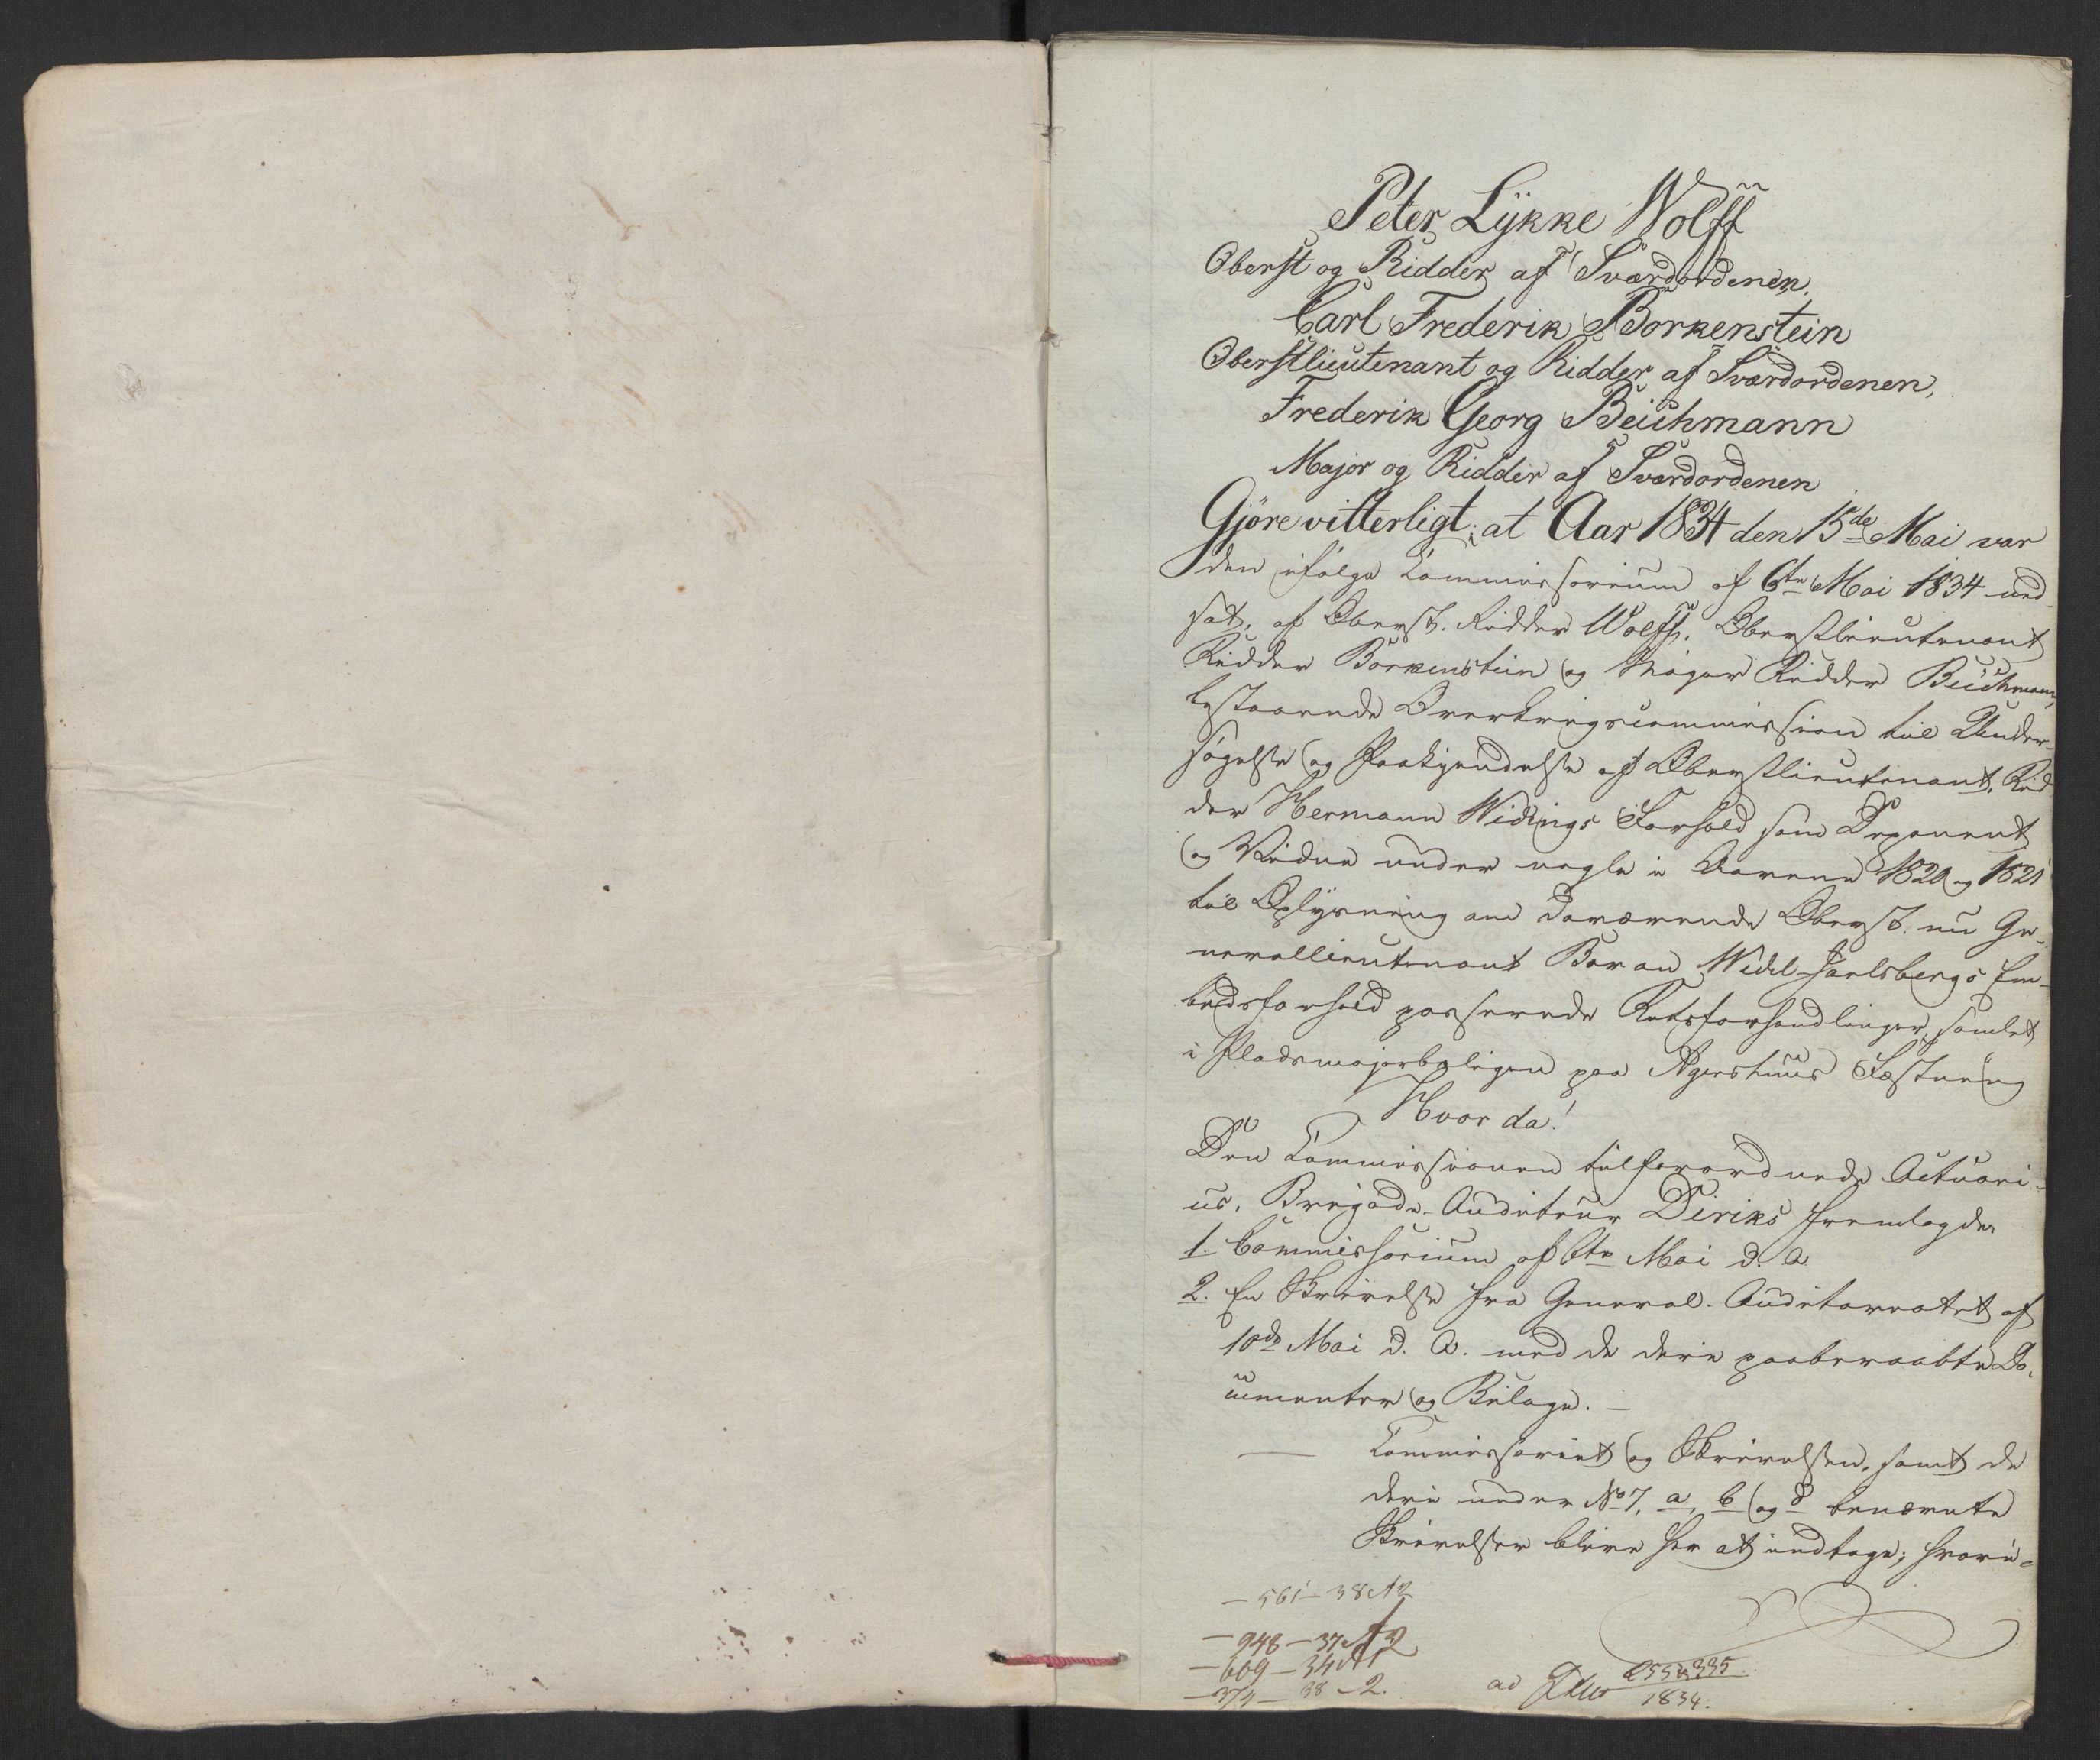 Peter Lykke Wolff
Oberst og Ridder af Sværdordenen,
Carl Frederik Borkenstein
Oberstlieutenant og Ridder af Sværdordenen,
Frederik Georg Beichmann
Major og Ridder af Sværdordenen
Gjöre vitterligt: at Aar 1834 den 15de Mai var
den ifølge Commissorium af 6te Mai 1834 ned-
satte, af Oberst, Ridder Wolff, Oberstlieutenant
Ridder Borkenstein og Major Ridder Beichmann,
bestaaende Overkrigscommission til Under-
søgelse og Paakjendelse af Oberstlieutenant, Rid-
der Hermann Widings Forhold som Deponent
og Vidne under nogle i Aarene 1820 og 1821
til Oplysning om daværende Oberst, nu Ge-
nerallieutenant Baron Wedel-Jarlsbergs Em-
bedsforhold passerede Retsforhandlinger, samlet
i Pladsmajorboligen paa Agershuus Fæstning
Hvor da!
Den Commissionen tilforordnede Actuari-
us, Brigade-Auditeur Diriks fremlagde
1. Commissorium af 6te Mai d. A.
2. En Skrivelse fra General-Auditoratet af
10de Mai d. A. med de deri paaberaabte Do-
cumenter og Bilage. —
— Commissoriet og Skrivelsen, samt de
deri under No 7, a, b og d benævnte
Skrivelser blive her at indtage; hvori-
— 561 — 38 A 2
— 948 — 37 A 2
— 609 — 34 A 1
— 374 — 38 — 2.
ad
1834.